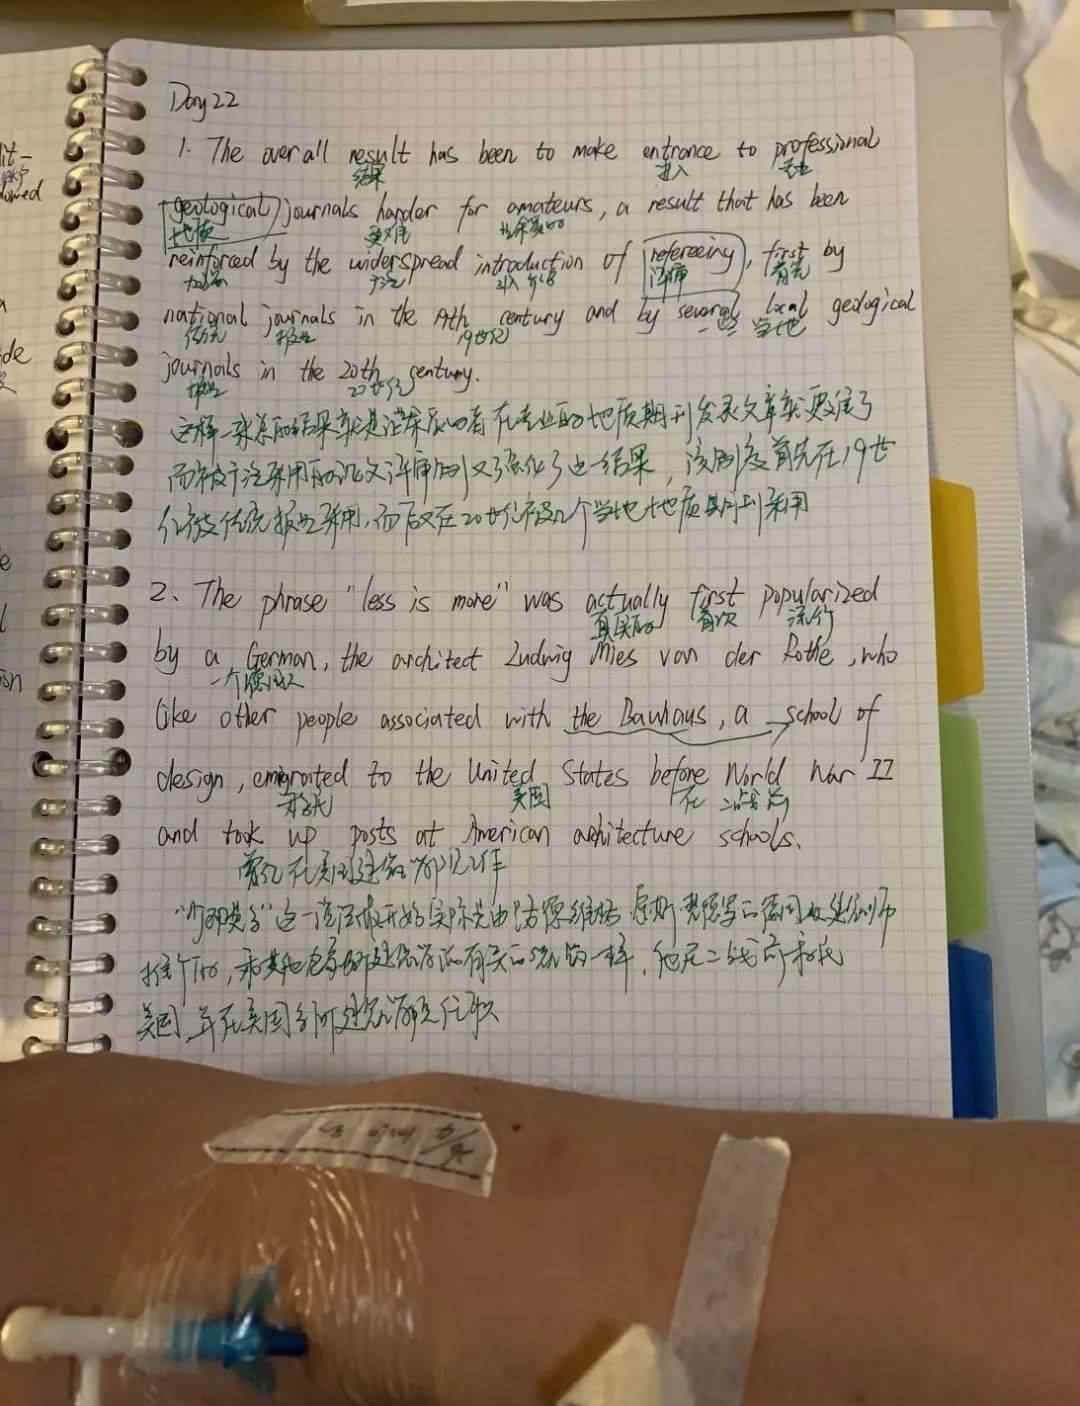 Day 22
1. The overall result has been to make entrance to professional
结果 进入 专业
geological journals harder for amateurs, a result that has been
地质 更难 业余爱好
reinforced by the widerspread introduction of refereeing, first by
加强 广泛 引入 介绍 评审 首先
national journals in the 19th century and by several local geological
传统 报业 19世纪 一些 当地
journals in the 20th century.
报业 20世纪
这样一来总的结果就是业余爱好者在专业的地质期刊发表文章就更难了
而被广泛采用的论文评审制又强化了这一结果,该制度首先在19世
纪被传统报业采用,而后又在20世纪被几个当地地质期刊采用
2、The phrase "less is more" was actually first popularized
真实的 首次 流行
by a German, the architect Ludwig Mies van der Rothe, who
一个德国人
like other people associated with the Bauhaus, a school of
design, emigrated to the United States before World War II
移民 美国 在二战前
and took up posts at American architecture schools.
曾经在美国建筑学院工作
"少即是多"这一说法最开始实际是由路德维希 密斯 凡德罗 德国 建筑师
推介的,和其他包豪斯建筑学派有关 一样,他在二战前移民
美国,并在美国 建筑学院任职